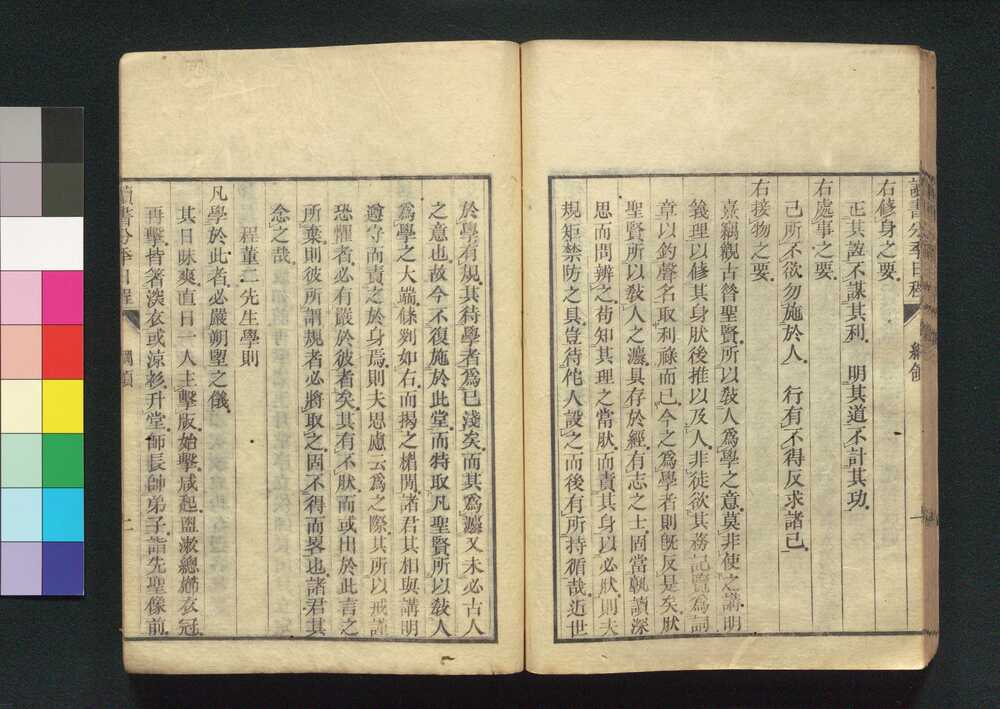 讀書分年日程　綱領　一
右修身之要
正其誼不謀其利　明其道不計其功
右處事之要
己所不欲勿施於人　行有不得反求諸己
右接物之要
熹竊觀古昔聖賢所以敎人爲學之意莫非使之講明
義理以修其身肰後推以及人非徒欲其務記覽爲詞
章以釣聲名取利祿而已今之爲學者則旣反是矣肰
聖賢所以敎人之灋具存於經有志之士固當孰讀深
思而問辨之苟知其理之當肰而責其身以必肰則夫
規矩禁防之具豈待佗人設之而後有所持循哉近世
於學有規其待學者爲已淺矣而其爲灋又未必古人
之意也故今不復施於此堂而特取凡聖賢所以敎人
爲學之大端條列如右而揭之楣閒諸君其相與講明
遵守而責之於身焉則夫思慮云爲之際其所以戒謹
恐懼者必有嚴於彼者矣其有不肰而或出於此言之
所棄則彼所謂規者必將取之固不得而畧也諸君其
念之哉
程董二先生學則
凡學於此者必嚴朔朢之儀
其日昧爽直日一人主擊版始擊咸起盥漱總櫛衣冠
再擊皆著深衣或涼衫升堂師長帥弟子詣先聖像前
讀書分年日程　綱領　二